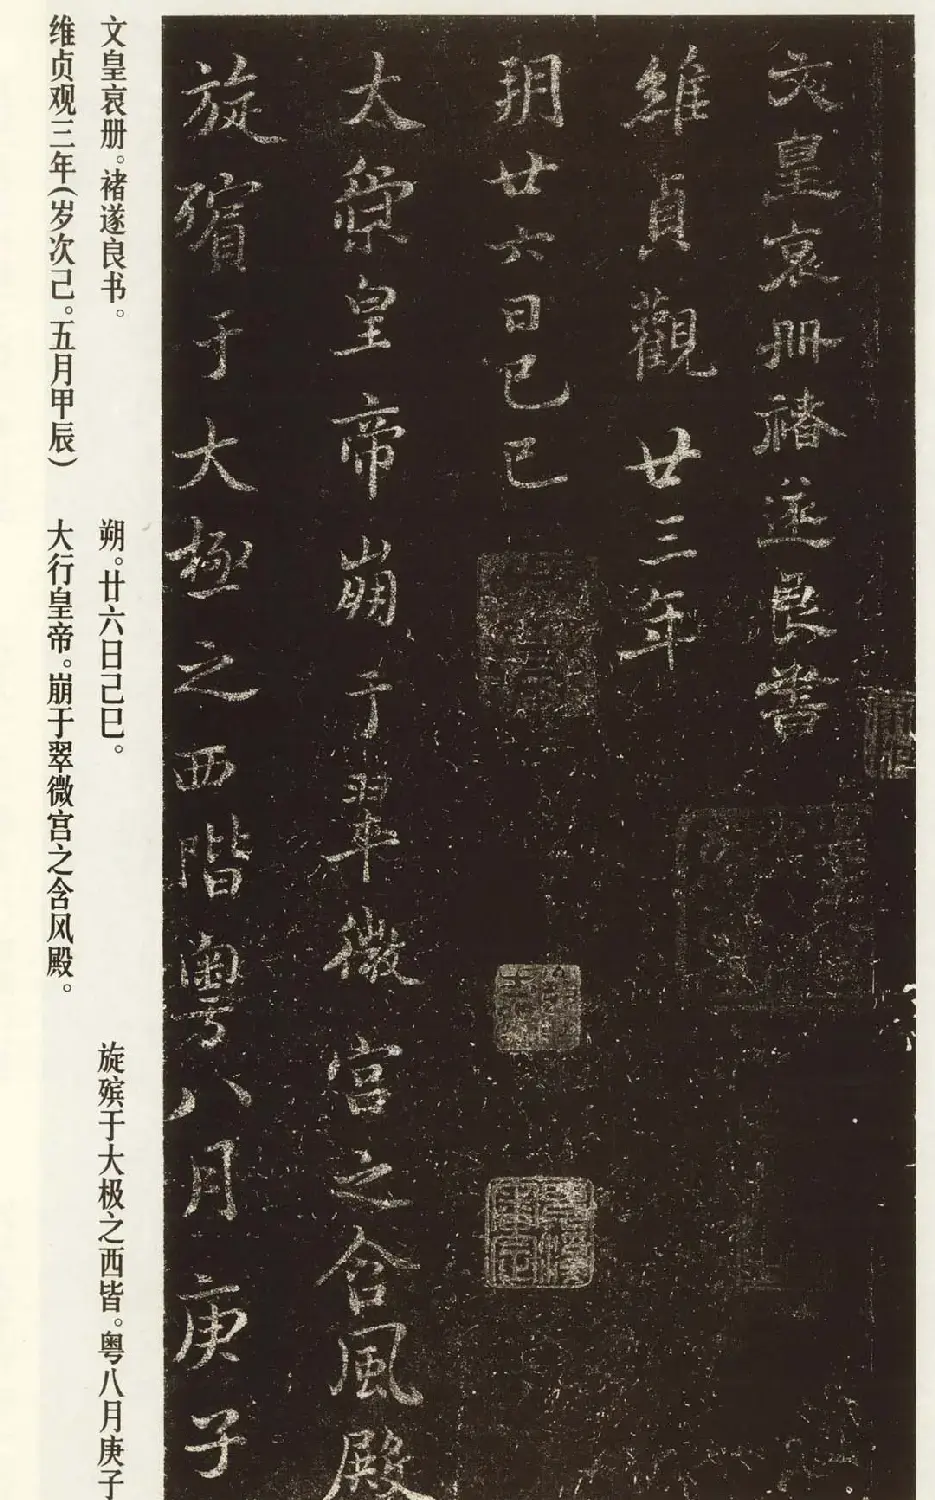 文皇哀冊褚遂良書
維貞觀廿三年
朔廿六日己巳
太宗皇帝崩于翠微宫之含風殿
旋殯于大極之西階粤八月庚子
文皇哀册。褚遂良书。
维贞观三年(岁次己。五月甲辰)
朔。廿六日己巳。
大行皇帝。崩于翠微宫之含风殿。
旋殡于大极之西皆。粤八月庚子